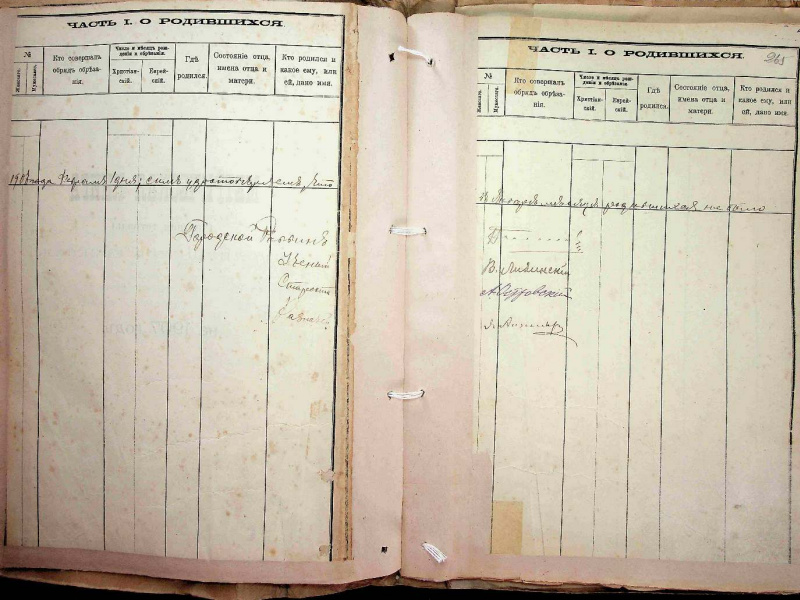 ЧАСТЬ I. О РОДИВШИХСЯ.
№
Женскаго.
Мужескаго.
Кто совершалъ обрядъ обрѣзанія.
Число и мѣсяцъ рожденія и обрѣзанія.
Христіанскій.
Еврейскій.
Гдѣ родился.
Состояніе отца, имена отца и матери.
Кто родился и какое ему, или ей, дано имя.
года Февраля 1 дня; симъ удостовѣряемъ, что
Городской Раввинъ
Ученый
Староста
Казначей
ЧАСТЬ I. О РОДИВШИХСЯ.
№
Женскаго.
Мужескаго.
Кто совершалъ обрядъ обрѣзанія.
Число и мѣсяцъ рожденія и обрѣзанія.
Христіанскій.
Еврейскій.
Гдѣ родился.
Состояніе отца, имена отца и матери.
Кто родился и какое ему, или ей, дано имя.
въ Январѣ мѣсяцѣ родившихся не было
А. Островскій